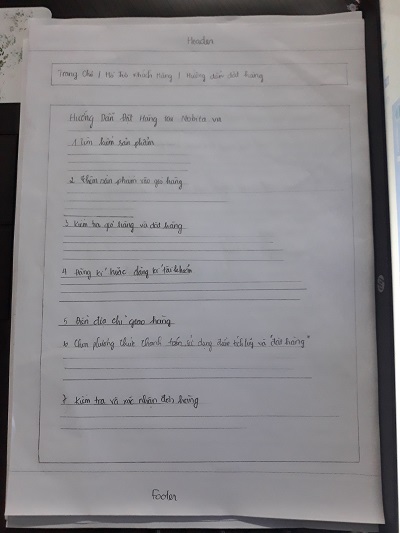 Header
Trang Chủ / Hỗ Trợ Khách Hàng / Hướng dẫn đặt hàng
Hướng Dẫn Đặt Hàng tại Nobita.vn
1. Tìm kiếm sản phẩm
2. Thêm sản phẩm vào giỏ hàng
3. Kiểm tra giỏ hàng và đặt hàng
4. Đăng kí hoặc đăng kí tài khoản
5. Điền địa chỉ giao hàng
6. Chọn phương thức thanh toán sử dụng điểm tích luỹ và "đặt hàng"
7. Kiểm tra và xác nhận đơn hàng
Footer